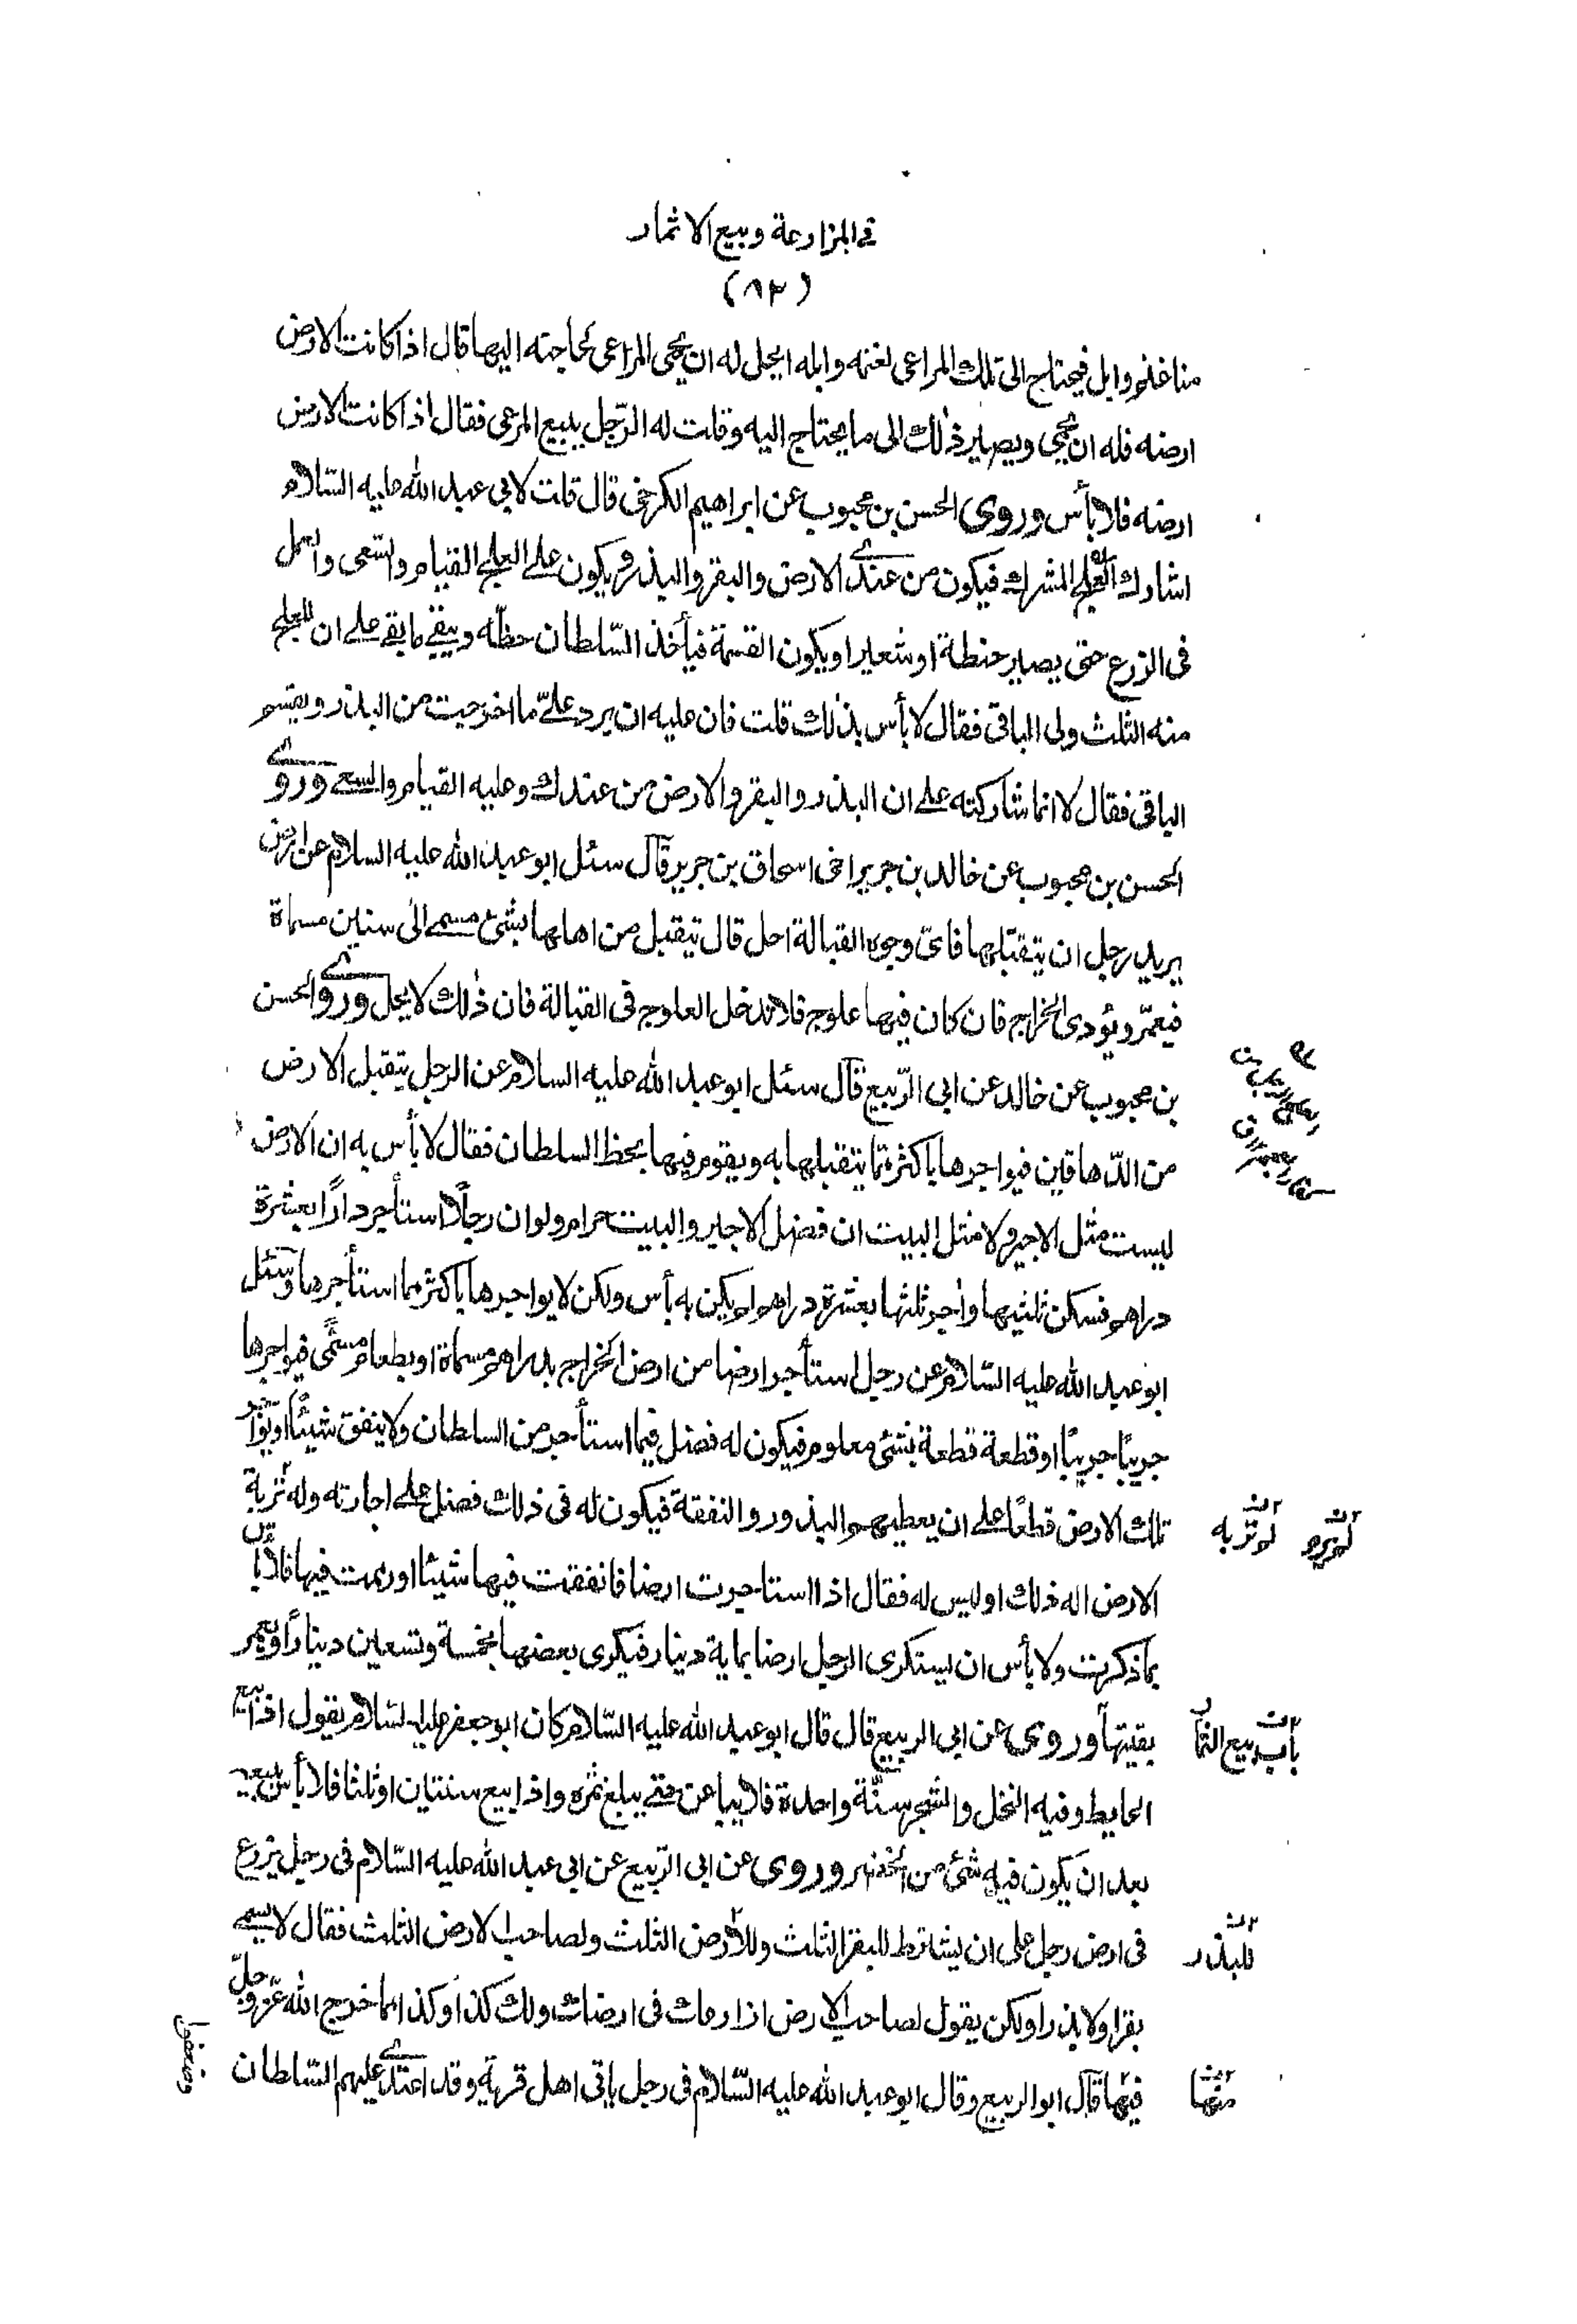 في المزارعة وبيع الاثمار
(٨٢)
منا غنم وابل فيحتاج الى تلك المراعى لغنمه وابله ايحل له ان يحمى المراعى لحاجته اليها قال اذا كانت الارض
ارضه فله ان يحمى ويصير ذٰلك الى ما يحتاج اليه وقلت له الرّجل يبيع المرعى فقال اذا كانت الارض
ارضه فلا بأس وروى الحسن بن محبوب عن ابراهيم الكرخى قال قلت لابى عبد الله عليه السّلام
اشارك العلج المشرك فيكون من عندى الارض والبقر والبذر ويكون على العلج القيام والسّعى والعمل
فى الزرع حتى يصير حنطة او شعيرا ويكون القسمة فيأخذ السّلطان حظّه ويبقى ما بقى على ان للعلج
منه الثلث ولى الباقى فقال لا بأس بذٰلك قلت فان عليه ان يرد علىّ ما اخرجت من البذر ويقسم
الباقى فقال لا انما شاركته على ان البذر والبقر والارض من عندك وعليه القيام والسعى وروى
الحسن بن محبوب عن خالد بن جرير اخى اسحاق بن جرير قال سئل ابو عبد الله عليه السلام عن ارض
يريد رجل ان يتقبّلها فاىّ وجوه القبالة احل قال يتقبل من اهلها بشئ مسمى الى سنين مسماة
فيعمّر ويؤدى الخراج فان كان فيها علوج فلا تدخل العلوج فى القبالة فان ذٰلك لا يحل وروى الحسن
بن محبوب عن خالد عن ابى الرّبيع قال سئل ابو عبد الله عليه السلام عن الرجل يتقبل الارض
من الدّهاقين فيواجرها باكثر ممّا يتقبلها به ويقوم فيها بحظ السلطان فقال لا بأس به ان الارض
ليست مثل الاجير ولا مثل البيت ان فضل الاجير والبيت حرام ولو ان رجلًا استأجر دارًا بعشرة
دراهم فسكن ثلثيها واجر ثلثها بعشرة دراهم لم يكن به بأس ولكن لا يواجرها باكثر مما استأجرها وسئل
ابو عبد الله عليه السّلام عن رجل استأجر ارضا من ارض الخراج بدراهم مسماة او بطعام مسمًّى فيواجرها
جريبًا جريبًا او قطعة قطعة بشئ معلوم فيكون له فضل فيما استأجر من السلطان ولا ينفق شيئًا او يؤاجر
تلك الارض قطعًا على ان يعطيهم البذور والنفقة فيكون له فى ذلك فضل على اجارته وله تربة
الارض اله ذلك او ليس له فقال اذا استاجرت ارضا فانفقت فيها شيئا او رممت فيها فلا بأس
بما ذكرت ولا بأس ان يستكرى الرجل ارضا بماية دينار فيكرى بعضها بخمسة وتسعين دينارًا ويعمر
بقيتها وروى عن ابى الربيع قال قال ابو عبد الله عليه السّلام كان ابو جعفر عليه السّلام يقول اذا بيع
باب بيع الثمار
الحايط وفيه النخل والشجر سنة واحدة فلا يباعن حتى يبلغ ثمره واذا بيع سنتين او ثلثا فلا بأس ببيعه
بعد ان يكون فيه شئ من الخضر وروى عن ابى الرّبيع عن ابى عبد الله عليه السّلام فى رجل يزرع
فى ارض رجل على ان يشترط للبقر الثلث وللارض الثلث ولصاحب الارض الثلث فقال لا يسمى
للبذر
بقرا ولا بذرا ولكن يقول لصاحب الارض ازارعك فى ارضك ولك كذا وكذا مما اخرج الله عزّ وجلّ
فيها قال ابو الربيع وقال ابو عبد الله عليه السّلام فى رجل ياتى اهل قرية وقد اعتدى عليهم السّلطان
منها
وضعفوا